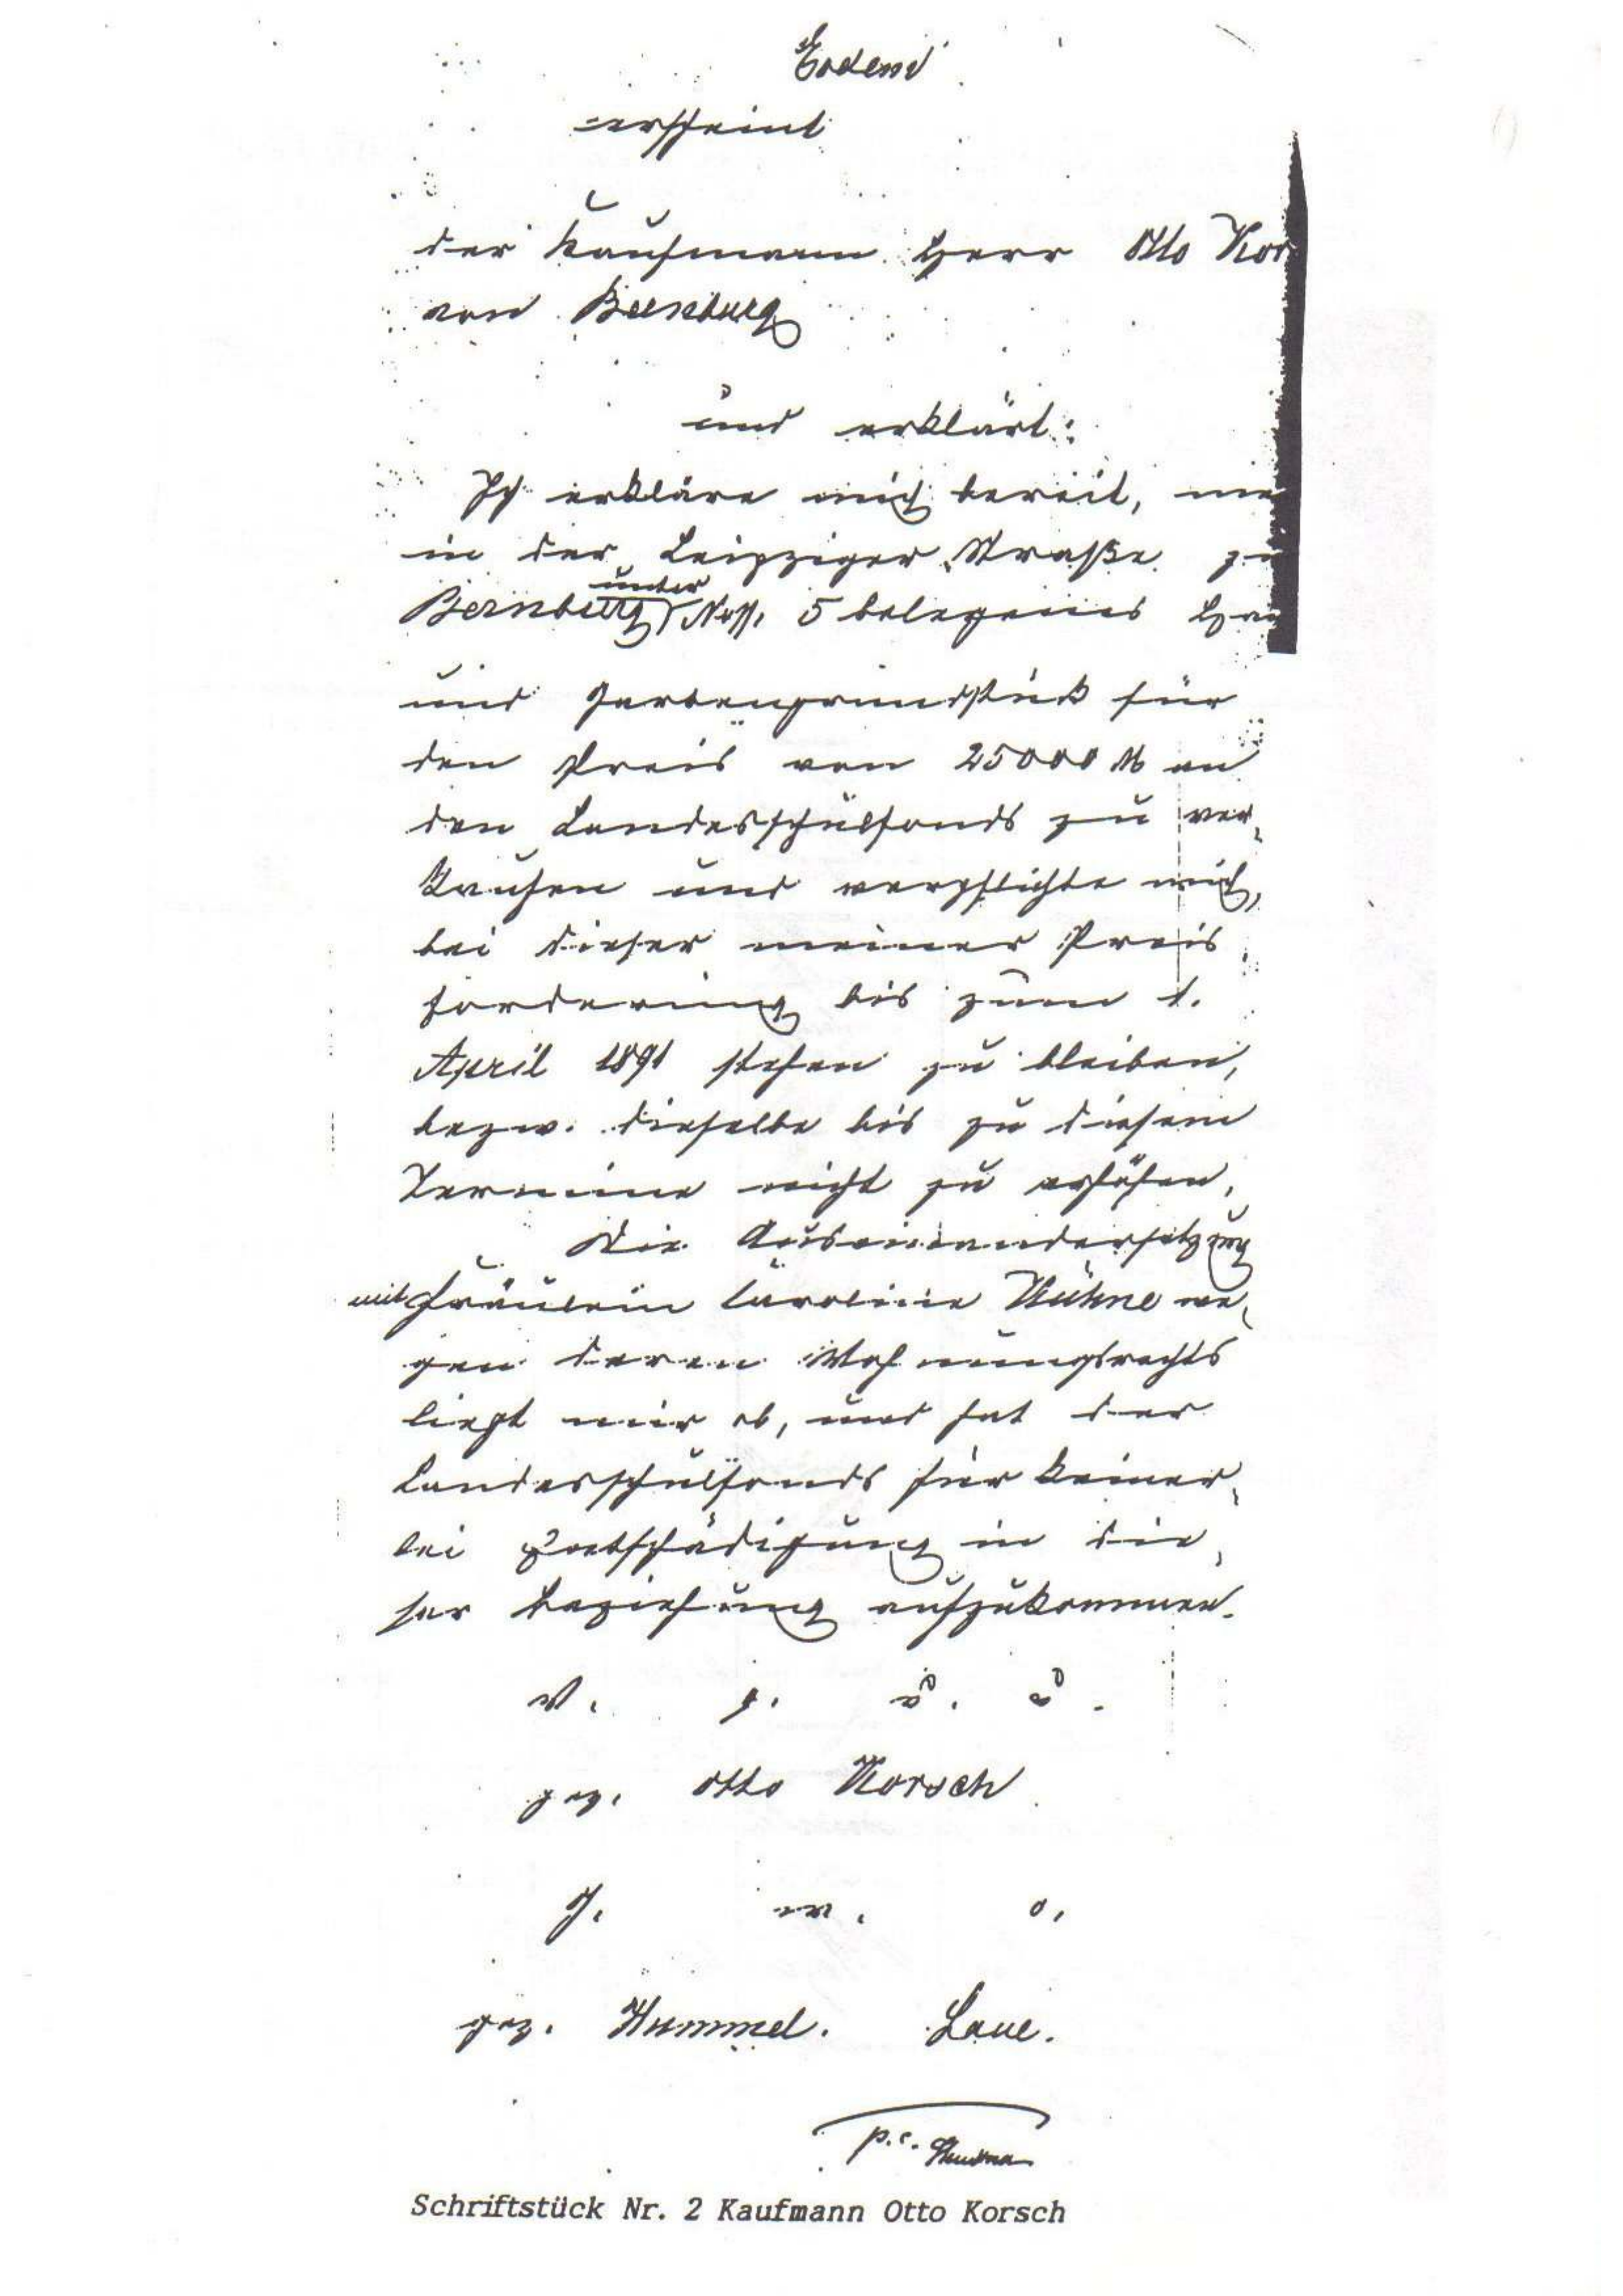 Eodem
erscheint
der Kaufmann Herr Otto Kor
von Bernburg
und erklärt:
Ich erkläre mich bereit, me
in der Leipziger Straße zu
Bernburg unter No. 5 belegenes Hau
und Gartengrundstück für
den Preis von 25000 M an
den Landesschulfonds zu ver-
kaufen und verpflichte mich,
bei dieser meiner Preis
forderung bis zum 1.
April 1891 stehen zu bleiben,
bezw. dieselbe bis zu diesem
Termine nicht zu erhöhen.
Die Auseinandersetzung
mit Fräulein Caroline Kühne we-
gen deren Wohnungsrechts
liegt mir ob, und hat der
Landesschulfonds für keiner-
lei Entschädigung in die-
ser Beziehung aufzukommen.
v. g. u. u.
gez. Otto Korsch
g. w. o.
gez. Hummel. Laue.
p.c.
Schriftstück Nr. 2 Kaufmann Otto Korsch